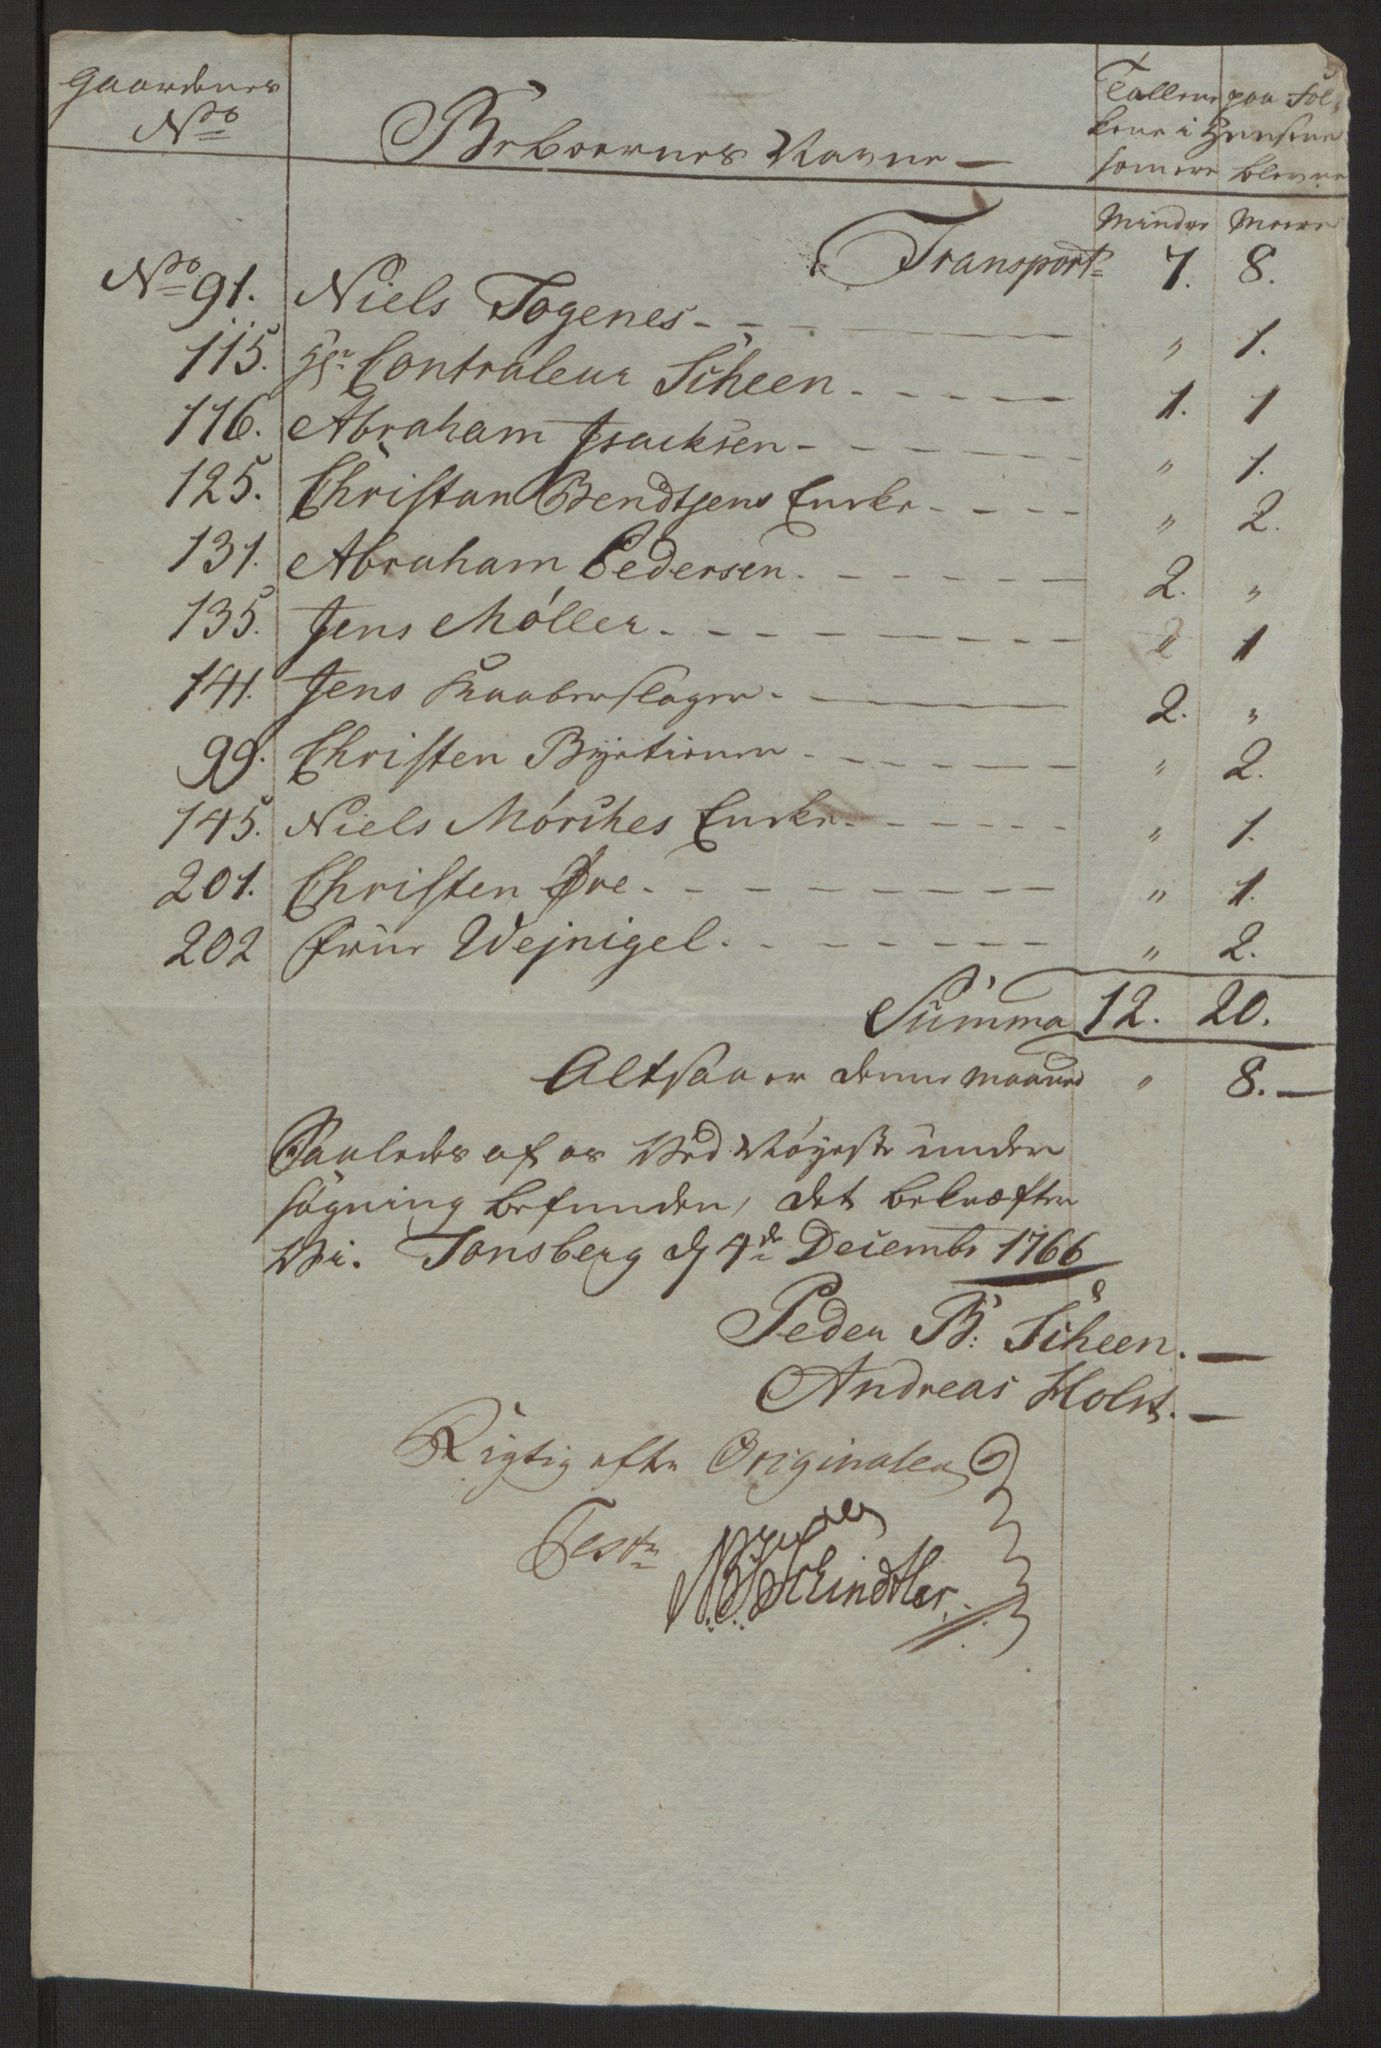 Gaardenes
No
Beboernes Navne
Tallene paa Fol-
kene i Huusene
som ere blevne
Mindre Meere
Transport 7. 8.
No 91. Niels Togenes - - - " 1.
115. Hr Contraleur Scheen - - - 1. 1
116. Abraham Jsacksen - - - " 1.
125. Christian Bendtsens Encke - - - " 2.
131. Abraham Pedersen - - - 2. "
135. Jens Møller - - - " 1
141. Jens Kaaberslager - - - 2. "
99. Christen Byetienner - - - " 2.
145. Niels Mørches Encke - - - " 1.
201. Christen Øre - - - " 1.
202 Frue Wejnigel - - - " 2.
Summa 12. 20.
Altsaa er denne Maaned " 8.
Saaledes af os Ved Nøyeste under
søgning befunden, det bekræfter
Vi. Tonsberg d 4de Decembr 1766
Peder B: Scheen.
Andreas Holst.
Rigtig efter Originalen
Test
Schindtler